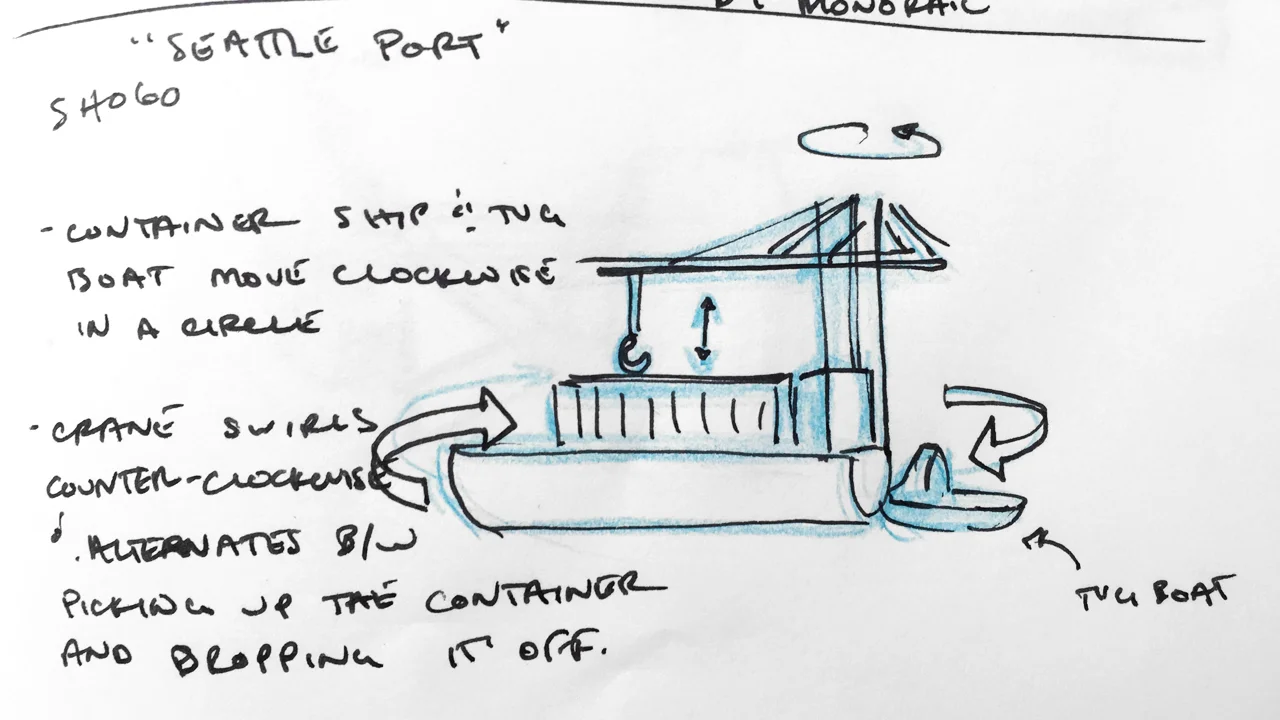 BY MONORAIL
"SEATTLE PORT"
SHOGO
- CONTAINER SHIP & TUG
BOAT MOVE CLOCKWISE
IN A CIRCLE
- CRANE SWIRLS
COUNTER-CLOCKWISE
& ALTERNATES B/W
PICKING UP THE CONTAINER
AND DROPPING IT OFF.
TUG BOAT